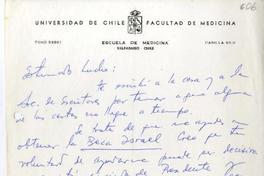 606
UNIVERSIDAD DE CHILE FACULTAD DE MEDICINA
ESCUELA DE MEDICINA
VALPARAISO - CHILE
Estimado Lucho:
Te escribí a la casa y a la
Soc. de Escritores por temor a que alguna
de las cartas no llegue a tiempo.
Se trata de que me ayudes a
obtener la Beca Israel. Creo que tu
voluntad de ayudarme puede ser decisiva
Presidente y